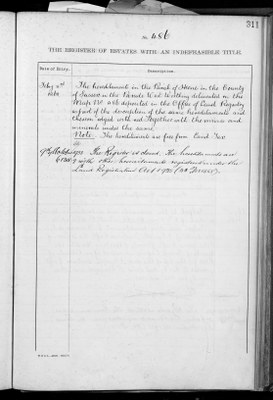 311
No. 486
THE REGISTER OF ESTATES WITH AN INDEFEASIBLE TITLE.
Date of Entry. Description.
The hereditaments in the Parish of Hove in the County
of Sussex in the
Map No. 486 deposited in the Office of Land Registry
as part of the description of the same hereditaments and
thereon edged with red Together with the mines and
minerals under the same.
Note. The hereditaments are free from Land Tax
The Register is closed. The hereditaments are
with other hereditaments registered under the
Land Registration Act 1925